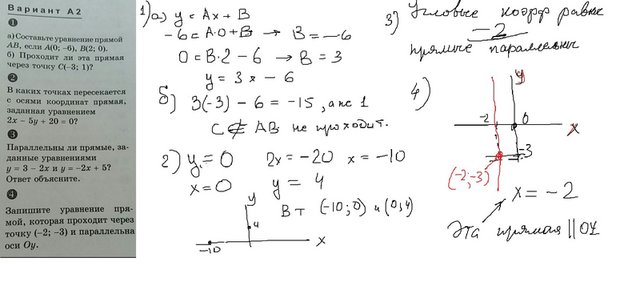 Вариант А2
1
а) Составьте уравнение прямой
AB, если A(0; -6), B(2; 0).
б) Проходит ли эта прямая
через точку C(-3; 1)?
2
В каких точках пересекается
с осями координат прямая,
заданная уравнением
2x - 5y + 20 = 0?
3
Параллельны ли прямые, за-
данные уравнениями
y = 3 - 2x и y = -2x + 5?
Ответ объясните.
4
Запишите уравнение пря-
мой, которая проходит через
точку (-2; -3) и параллельна
оси Oy.
1) а) y = Ax + B
-6 = A·0 + B → B = -6
0 = B·2 - 6 → B = 3
y = 3x - 6
б) 3(-3) - 6 = -15, а не 1
C ∉ AB не проходит.
2) y = 0 2x = -20 x = -10
x = 0 y = 4
В т (-10; 0) и (0; 4)
y
4
-10
x
3) Угловые коэфф равны
-2
прямые параллельны
4)
y
-2
0
x
-3
(-2;-3)
x = -2
Эта прямая || OY